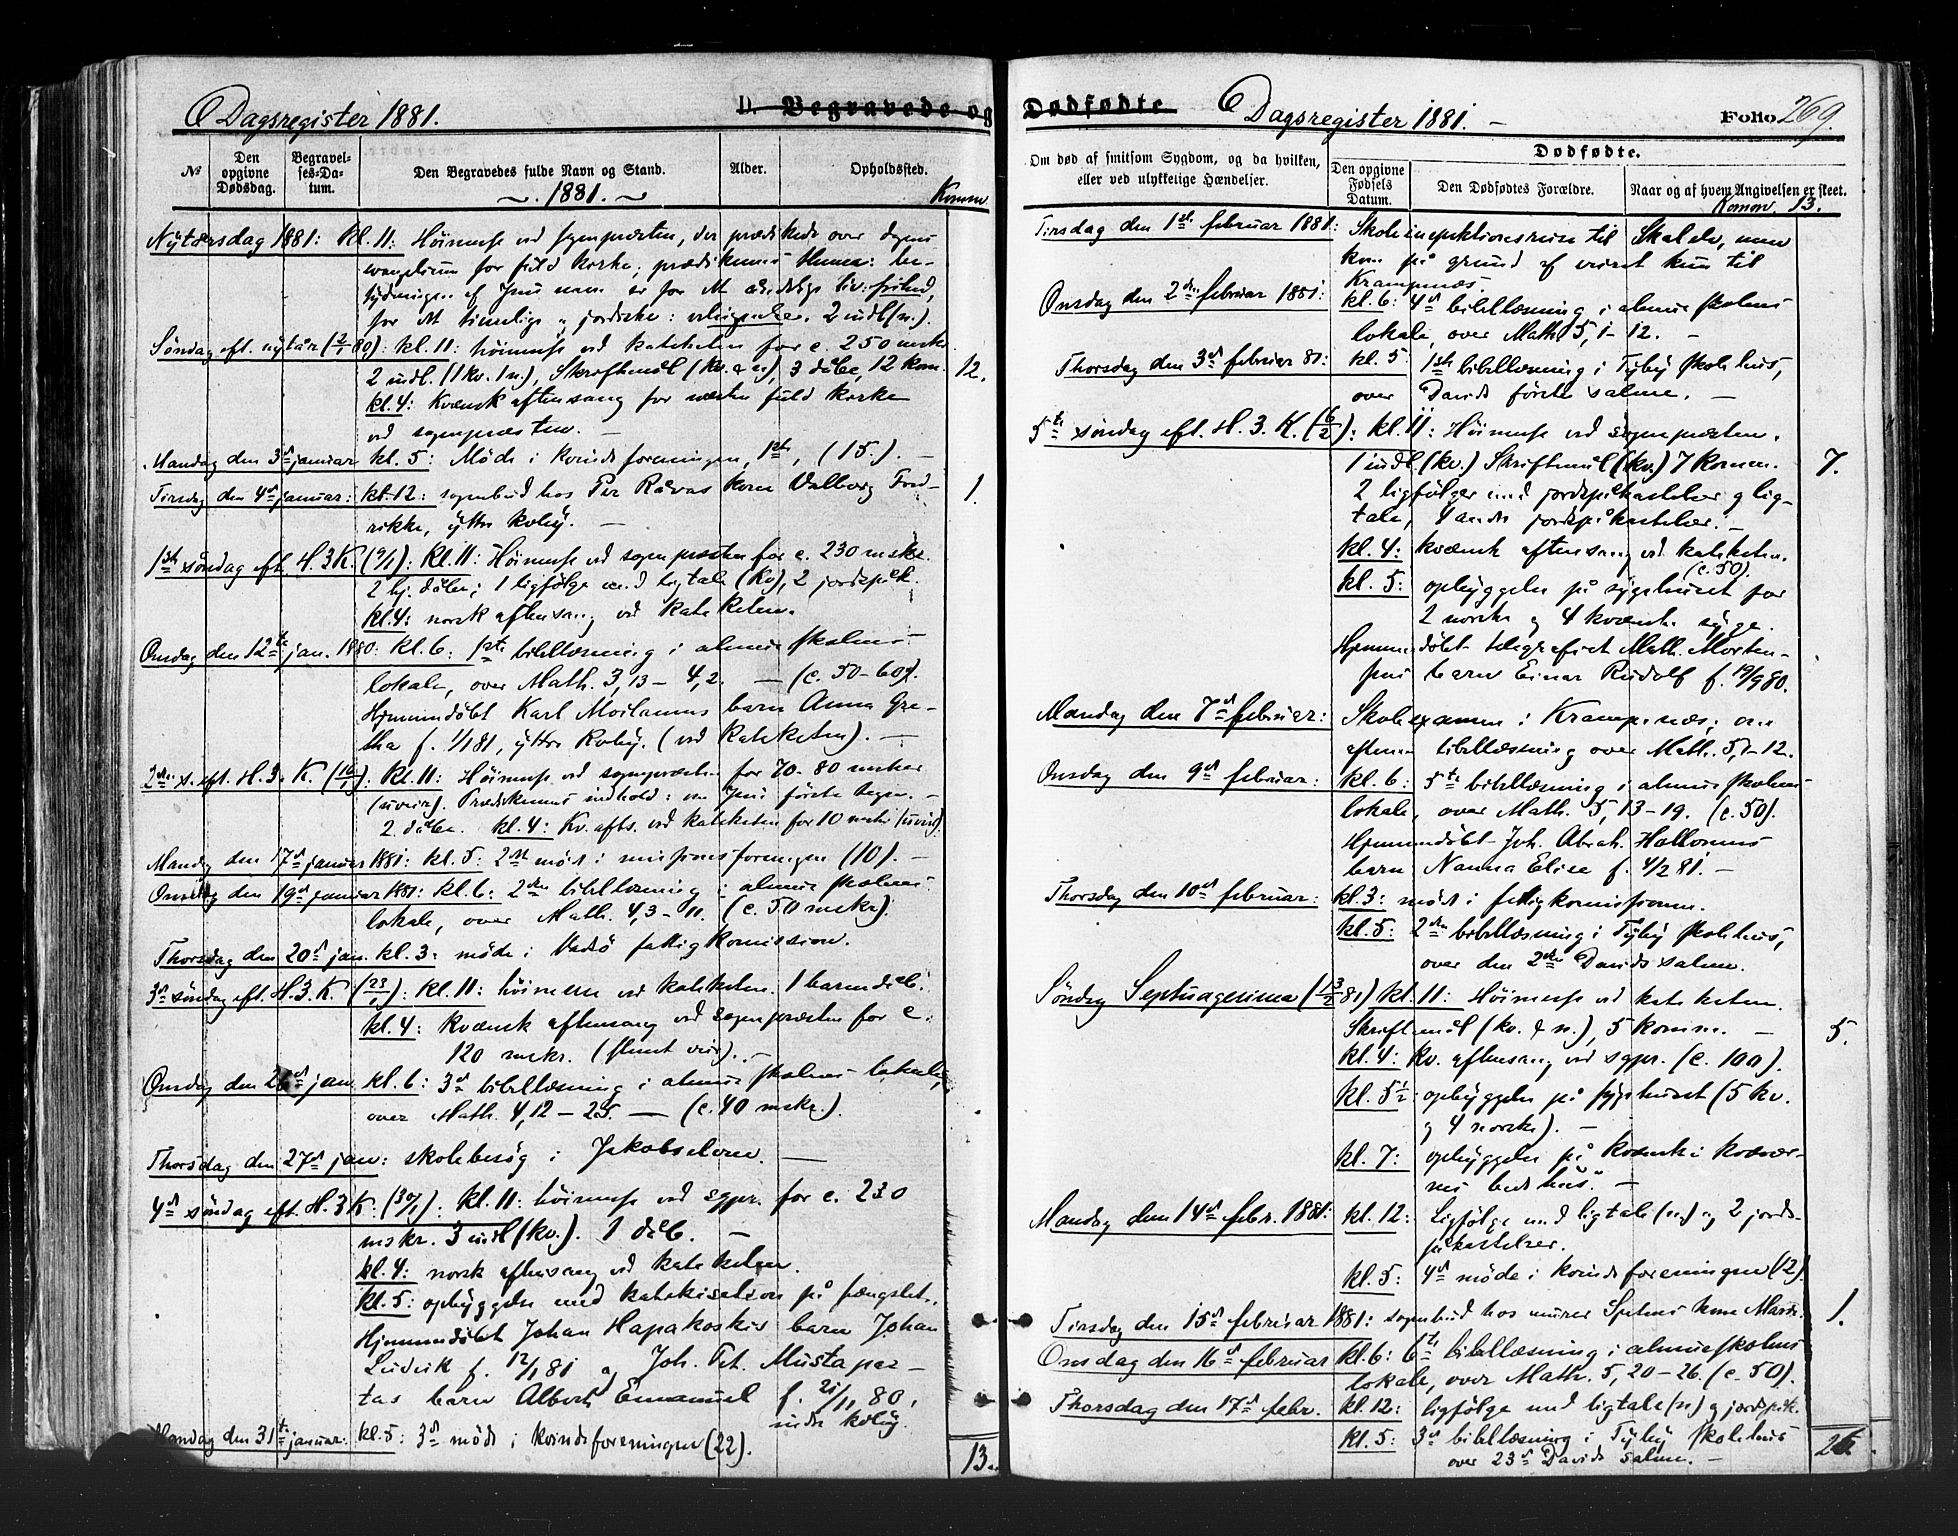 Dagsregister 1881.
D. Begravede og
№
Den opgivne Dødsdag.
Begravelses-Datum.
Den Begravedes fulde Navn og Stand.
Alder.
Opholdssted.
1881.
Komm.
Nytårsdag 1881: kl. 11: Höimesse ved sognepræsten, der prædikede over dagens
evangelium for fuld kirke; prædikenens thema: be-
tydningen af Jesu navn er for det åndelige liv: frihed,
for det timelige og jordiske: velsignelse. 2 indl. (n.).
Söndag eft. nytår (2/1 80): kl. 11: höimesse ved kateketen for c. 250 mskr.
2 indl. (1 kv. 1 n), Skriftemål (kv. & n), 3 dåbe, 12 kom. 12.
kl. 4: Kvænsk aftensang for næsten fuld kirke
ved sognepræsten. —
Mandag den 3d januar kl. 5: Möde i kvindeforeningen, 1ste, (15.). —
Tirsdag den 4d januar: kl. 12: sognebud hos Per Råvas kone Valborg Fred- 1.
rikke, ytre kvby. —
1ste söndag eft. H. 3 K. (9/1): kl. 11: Höimesse ved sognepræsten for c. 230 mskr.
2 hj. dåbe; 1 ligfölge med ligtale (kv), 2 jordspåk.
kl. 4: norsk aftensang ved kateketen.
Onsdag den 12te jan. 1880: kl. 6: 1ste bibellæsning i almueskolens
lokale, over Math. 3, 13 – 4, 2. — (c. 50-60).
Hjemmedöbt Karl Moilanens barn Anna Gre-
tha f. 1/1 81, ytre kvby. (ved kateketen). —
2den s. eft. H. 3. K. (16/1): kl. 11: Höimesse ved sognepræsten for 70-80 mskr
(uveir). Prædikenens indhold: om Jesu förste tegn. —
2 dåbe. kl. 4: Kv. afts. ved kateketen for 10 mskr (uveir).
Mandag den 17d januar 1881: kl. 5: 2det möde i missionsforeningen (10). —
Onsdag den 19d januar 1881: kl. 6: 2den bibellæsning i almueskolens
lokale, over Math. 4, 3 – 11. (c. 50 mskr).
Thorsdag den 20d jan. kl. 3: möde i Vadsö fattigkomission.
3d söndag eft. H. 3. K. (23/1): kl. 11: höimesse ved kateketen. 1 barnedåb.
kl. 4: kvænsk aftensang ved sognepræsten for c.
120 mskr. (slemt veir). —
Onsdag den 26d jan. kl. 6: 3d bibellæsning i almueskolens lokale,
over Math. 4, 12 – 25. — (c. 40 mskr.).
Thorsdag den 27d jan: skolebesög i Jakobselven. —
4d söndag eft. H. 3 K. (30/1): kl. 11: höimesse ved sgpr. for c. 230
mskr. 3 indl (kv.). 1 dåb. —
kl. 4: norsk aftensang ved kateketen.
kl. 5: opbyggelse med katekisation på fængslet.
Hjemmedöbt Johan Hapakoskis barn Johan
Ludvik f. 12/1 81 og Joh. Pet. Mustapar-
tas barn Albert Emanuel f. 21/11 80,
indre kvby.
Mandag den 31te januar: kl. 5: 3d möde i kvindeforeningen (22).
13
Dødfødte
Dagsregister 1881. —
Folio 269.
Om død af smitsom Sygdom, og da hvilken, eller ved ulykkelige Hændelser.
Dødfødte.
Den opgivne Fødsels Datum.
Den Dødfødtes Forældre.
Naar og af hvem Angivelsen er skeet.
Komm. 13.
Tirsdag den 1ste februar 1881: Skoleinspektionsreise til Skalelv, men
kom på grund af veiret kun til
Krampenæs.
Onsdag den 2den februar 1881: kl. 6: 4d bibellæsning i almueskolens
lokale, over Math. 5, 1-12. —
Thorsdag den 3d februar 81: kl. 5 1ste bibellæsning i Tyby skolehus,
over Davids förste salme. —
5te söndag eft. H. 3. K. (6/2): kl. 11: Höimesse ved sognepræsten.
1 indl (kv.) Skriftemål (kv.) 7 komm. 7.
2 ligfölger med jordspåkastelser og lig-
tale, 4 andre jordspåkastelser. —
kl. 4: kvænsk aftensang ved kateketen.
(c. 50).
kl. 5: opbyggelse på sygehuset for
2 norske og 4 kvænske syge.
Hjemmedöbt telegrafist Math. Morten-
sens barn Einar Rudolf f. 19/9 80.
Mandag den 7d februar: Skoleexamen i Krampenæs; om
aftenen bibellæsning over Math. 5, 1-12.
Onsdag den 9d februar: kl. 6: 5te bibellæsning i almueskolens
lokale, over Math. 5, 13-19. (c. 50).
Hjemmedöbt Joh. Abrah. Hallonens
barn Nanna Elise f. 4/2 81. —
Thorsdag den 10d februar: kl. 3: möde i fattigkomissionen.
kl. 5: 2den bibellæsning i Tyby skolehus,
over den 2den Davids salme.
Söndag Septuagesima (13/2 81) kl. 11: Höimesse ved kateketen.
Skriftemål (kv. & n.), 5 komm. — 5.
kl. 4: kv. aftensang ved sgpr. (c. 100).
kl. 5½ opbyggelse på sygehuset (5 kv.
og 4 norske). —
kl. 7: opbyggelse på kvænsk i kvæner-
nes bedehus. —
Mandag den 14d febr. 1881: kl. 12: Ligfölge med ligtale (n.) og 2 jords-
påkastelser.
kl. 5: 4d möde i kvindeforeningen (12).
Tirsdag den 15d februar 1881: sognebud hos murer kone 1.
Onsdag den 16d februar kl. 6: 6te bibellæsning i almueskolens
lokale, over Math. 5, 20-26. (c. 50).
Thorsdag den 17d febr. kl. 12: ligfölge med ligtale (n) og jordspåk.
kl. 5: 3d bibellæsning i Tyby skolehus
over 23d Davids salme. —
26.